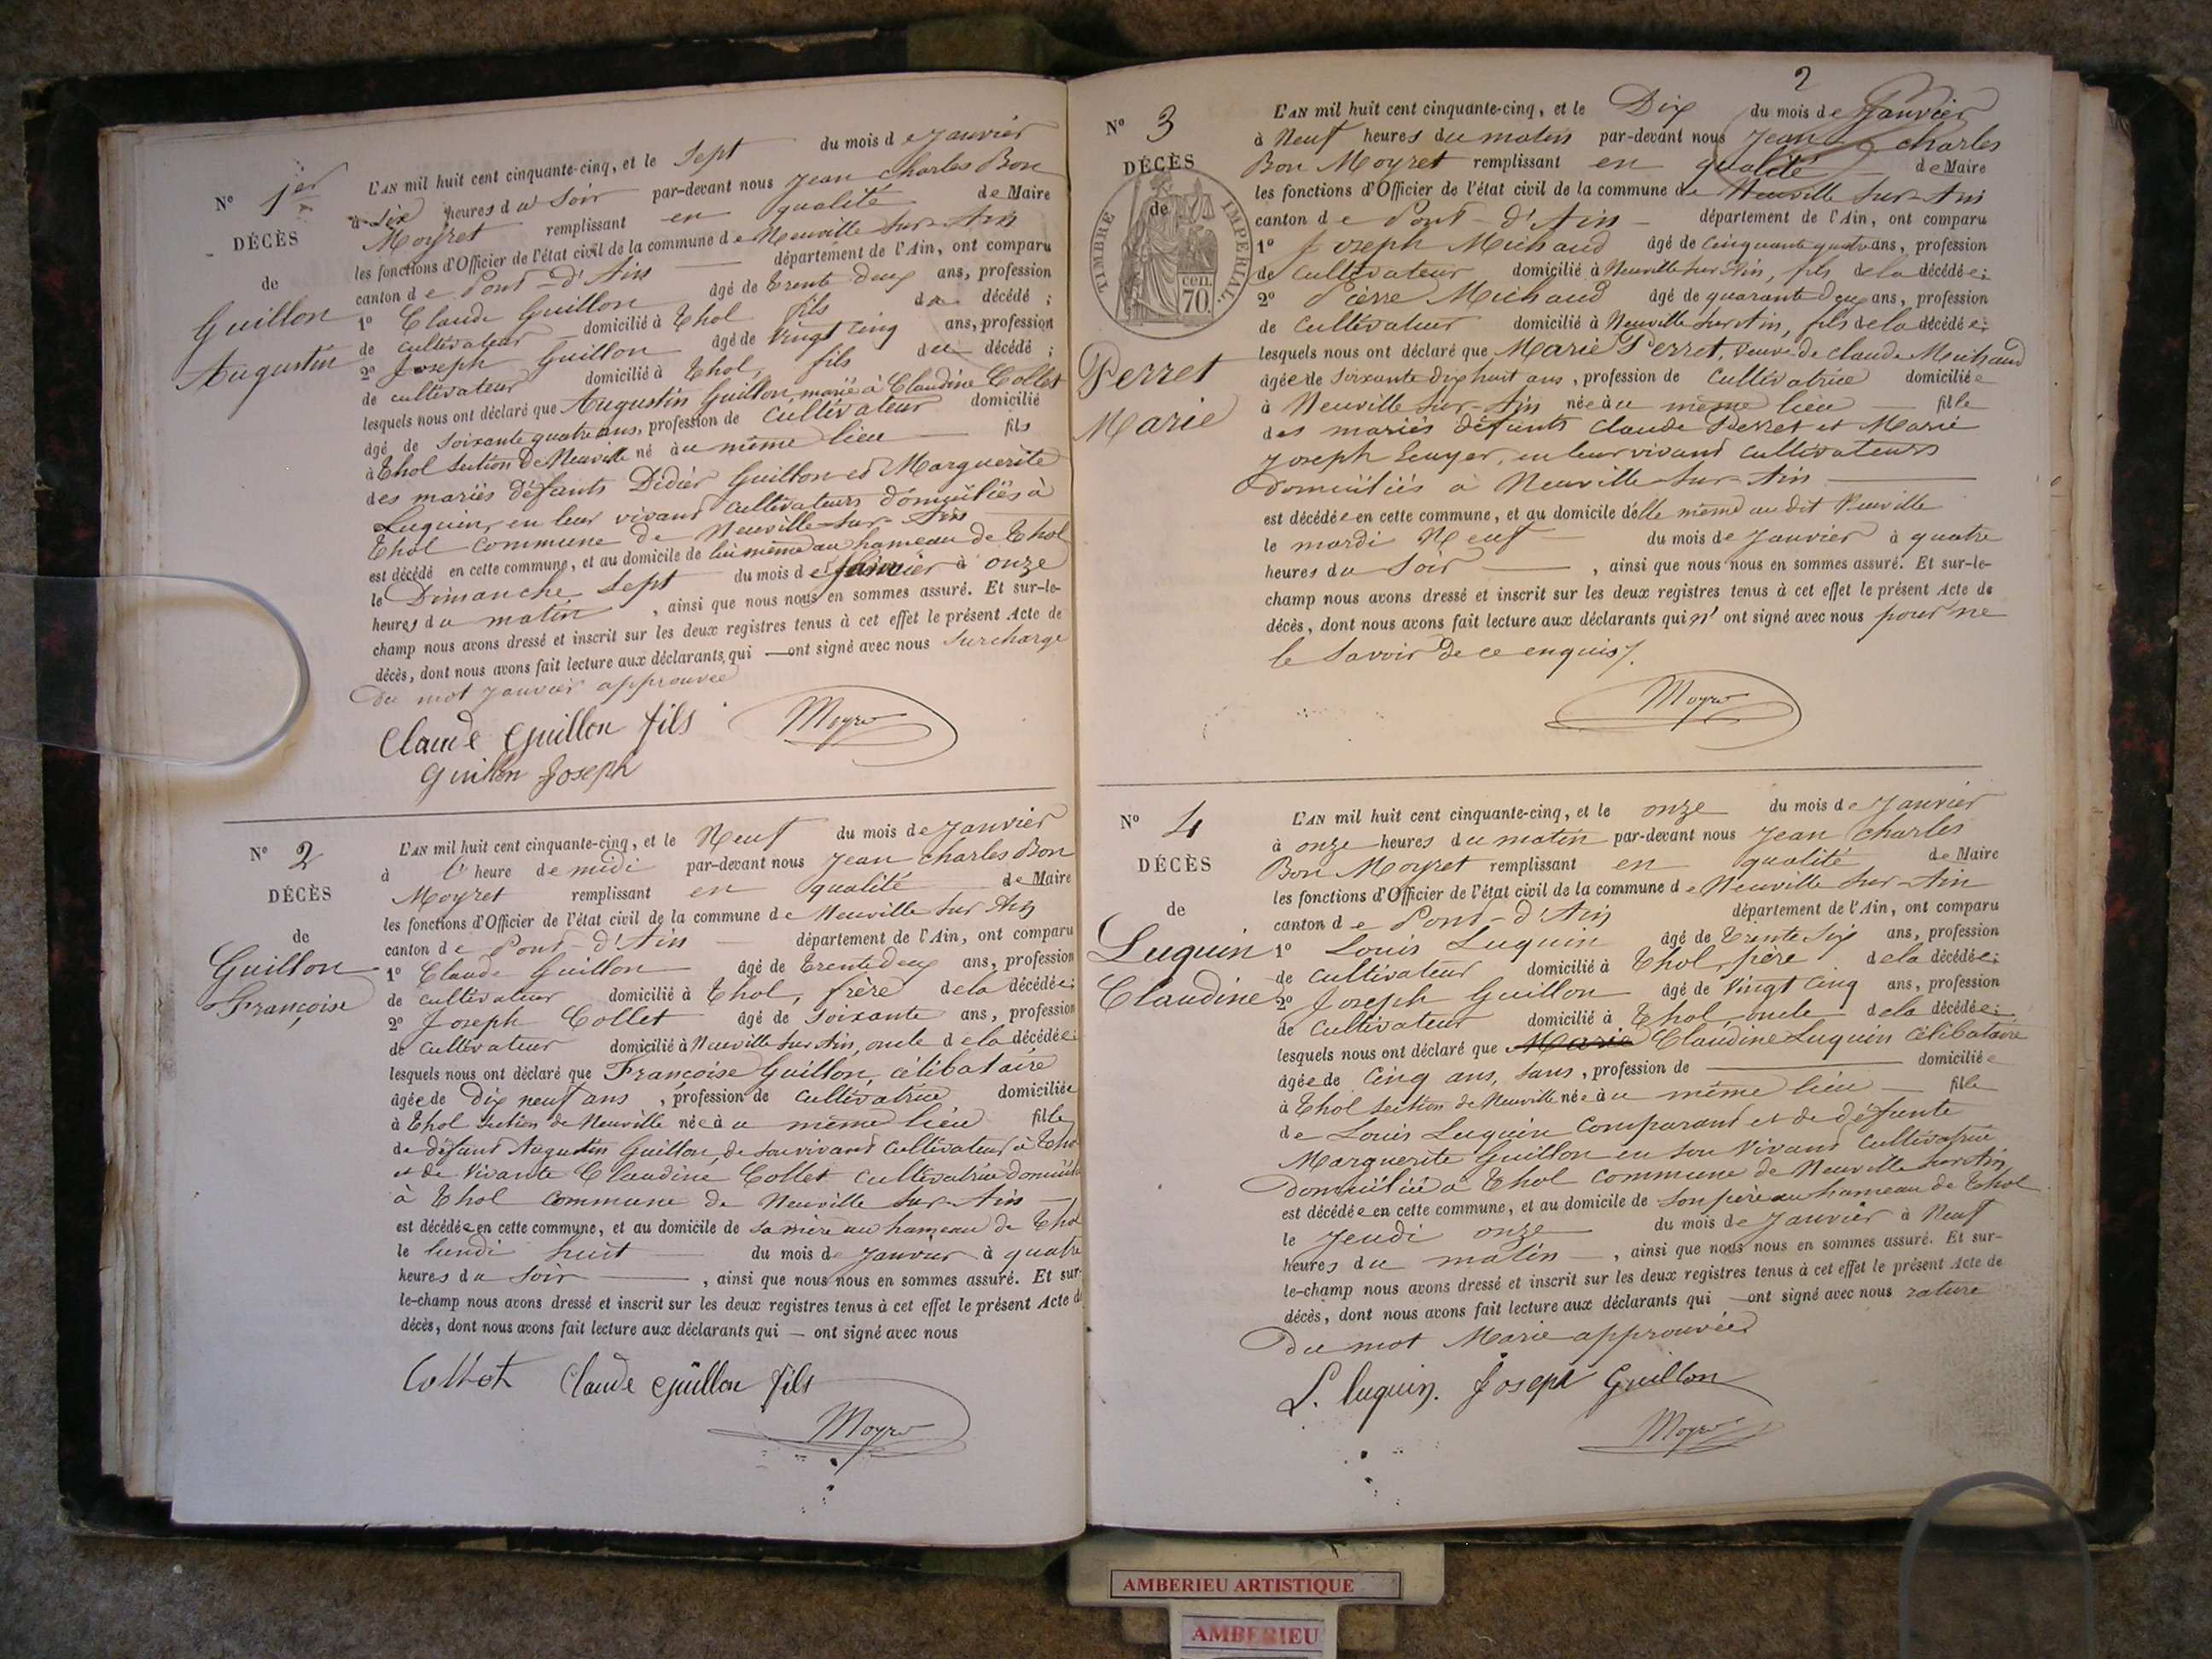 N° 1er
DÉCÈS
de
Guillon
Augustin
L'AN mil huit cent cinquante-cinq, et le Sept du mois de Janvier
à Six heures du Soir par-devant nous Jean Charles Bon
Moyret remplissant en qualité de Maire
les fonctions d'Officier de l'état civil de la commune de Neuville Sur-Ain
canton de Pont-d'Ain département de l'Ain, ont comparu
1° Claude Guillon âgé de trente deux ans, profession
de cultivateur domicilié à Thol fils du décédé ;
2° Joseph Guillon âgé de vingt cinq ans, profession
de cultivateur domicilié à Thol, fils du décédé ;
lesquels nous ont déclaré que Augustin Guillon, marié à Claudine Collet
âgé de Soixante quatre ans, profession de Cultivateur domicilié
à Thol Section de Neuville né au même lieu fils
des mariés défunts Didier Guillon et Marguerite
Luquin, en leur vivant cultivateurs domiciliés à
Thol commune de Neuville-Sur-Ain
est décédé en cette commune, et au domicile de lui même au hameau de Thol
le Dimanche Sept du mois de Janvier à onze
heures du matin, ainsi que nous nous en sommes assuré. Et sur-le-
champ nous avons dressé et inscrit sur les deux registres tenus à cet effet le présent Acte de
décès, dont nous avons fait lecture aux déclarants, qui — ont signé avec nous Surcharge
du mot Janvier approuvée
Claude Guillon fils Moyret
Guillon Joseph
N° 2
DÉCÈS
de
Guillon
Françoise
L'AN mil huit cent cinquante-cinq, et le Neuf du mois de Janvier
à l'heure de midi par-devant nous Jean Charles Bon
Moyret remplissant en qualité de Maire
les fonctions d'Officier de l'état civil de la commune de Neuville Sur Ain
canton de Pont-d'Ain département de l'Ain, ont comparu
1° Claude Guillon âgé de trente deux ans, profession
de cultivateur domicilié à Thol, frère de la décédée ;
2° Joseph Collet âgé de Soixante ans, profession
de cultivateur domicilié à Neuville Sur Ain, oncle de la décédée ;
lesquels nous ont déclaré que Françoise Guillon, célibataire
âgée de Dix neuf ans, profession de cultivatrice domiciliée
à Thol Section de Neuville née au même lieu fille
de défunt Augustin Guillon, de son vivant cultivateur à Thol
et de vivante Claudine Collet cultivatrice domiciliée
à Thol commune de Neuville Sur-Ain
est décédée en cette commune, et au domicile de sa mère au hameau de Thol
le lundi huit du mois de Janvier à quatre
heures du Soir, ainsi que nous nous en sommes assuré. Et sur-
le-champ nous avons dressé et inscrit sur les deux registres tenus à cet effet le présent Acte de
décès, dont nous avons fait lecture aux déclarants qui — ont signé avec nous
Collet Claude Guillon fils
Moyret
2
N° 3
DÉCÈS
de
TIMBRE IMPERIAL
70. cen.
Perret
Marie
L'AN mil huit cent cinquante-cinq, et le Dix du mois de Janvier
à Neuf heures du matin par-devant nous Jean Charles
Bon Moyret remplissant en qualité de Maire
les fonctions d'Officier de l'état civil de la commune de Neuville Sur-Ain
canton de Pont-d'Ain département de l'Ain, ont comparu
1° Joseph Michaud âgé de Cinquante quatre ans, profession
de Cultivateur domicilié à Neuville Sur Ain, fils de la décédée ;
2° Pierre Michaud âgé de quarante deux ans, profession
de Cultivateur domicilié à Neuville Sur Ain, fils de la décédée ;
lesquels nous ont déclaré que Marie Perret, veuve de Claude Michaud
âgée de Soixante dix huit ans, profession de Cultivatrice domiciliée
à Neuville Sur-Ain née au même lieu fille
des mariés défunts Claude Perret et Marie
Joseph Leuyer, en leur vivant cultivateurs
domiciliés à Neuville Sur-Ain
est décédée en cette commune, et au domicile d'elle même au dit Neuville
le mardi Neuf du mois de Janvier à quatre
heures du Soir, ainsi que nous nous en sommes assuré. Et sur-le-
champ nous avons dressé et inscrit sur les deux registres tenus à cet effet le présent Acte de
décès, dont nous avons fait lecture aux déclarants qui n'ont signé avec nous pour ne
le Savoir de ce enquis/.
Moyret
N° 4
DÉCÈS
de
Luquin
Claudine
L'AN mil huit cent cinquante-cinq, et le onze du mois de Janvier
à onze heures du matin par-devant nous Jean Charles
Bon Moyret remplissant en qualité de Maire
les fonctions d'Officier de l'état civil de la commune de Neuville Sur-Ain
canton de Pont-d'Ain département de l'Ain, ont comparu
1° Louis Luquin âgé de trente Six ans, profession
de cultivateur domicilié à Thol, père de la décédée ;
2° Joseph Guillon âgé de vingt cinq ans, profession
de cultivateur domicilié à Thol, oncle de la décédée ;
lesquels nous ont déclaré que Marie Claudine Luquin célibataire
âgée de Cinq ans, Sans, profession de domiciliée
à Thol Section de Neuville née au même lieu fille
de Louis Luquin Comparant et de défunte
Marguerite Guillon en Son Vivant Cultivatrice
Domiciliée à Thol commune de Neuville Sur Ain
est décédée en cette commune, et au domicile de Son père au hameau de Thol
le Jeudi onze du mois de Janvier à Neuf
heures du matin, ainsi que nous nous en sommes assuré. Et sur-
le-champ nous avons dressé et inscrit sur les deux registres tenus à cet effet le présent Acte de
décès, dont nous avons fait lecture aux déclarants qui — ont signé avec nous rature
du mot Marie approuvée
L. luquin. Joseph Guillon
Moyret
AMBERIEU ARTISTIQUE
AMBERIEU